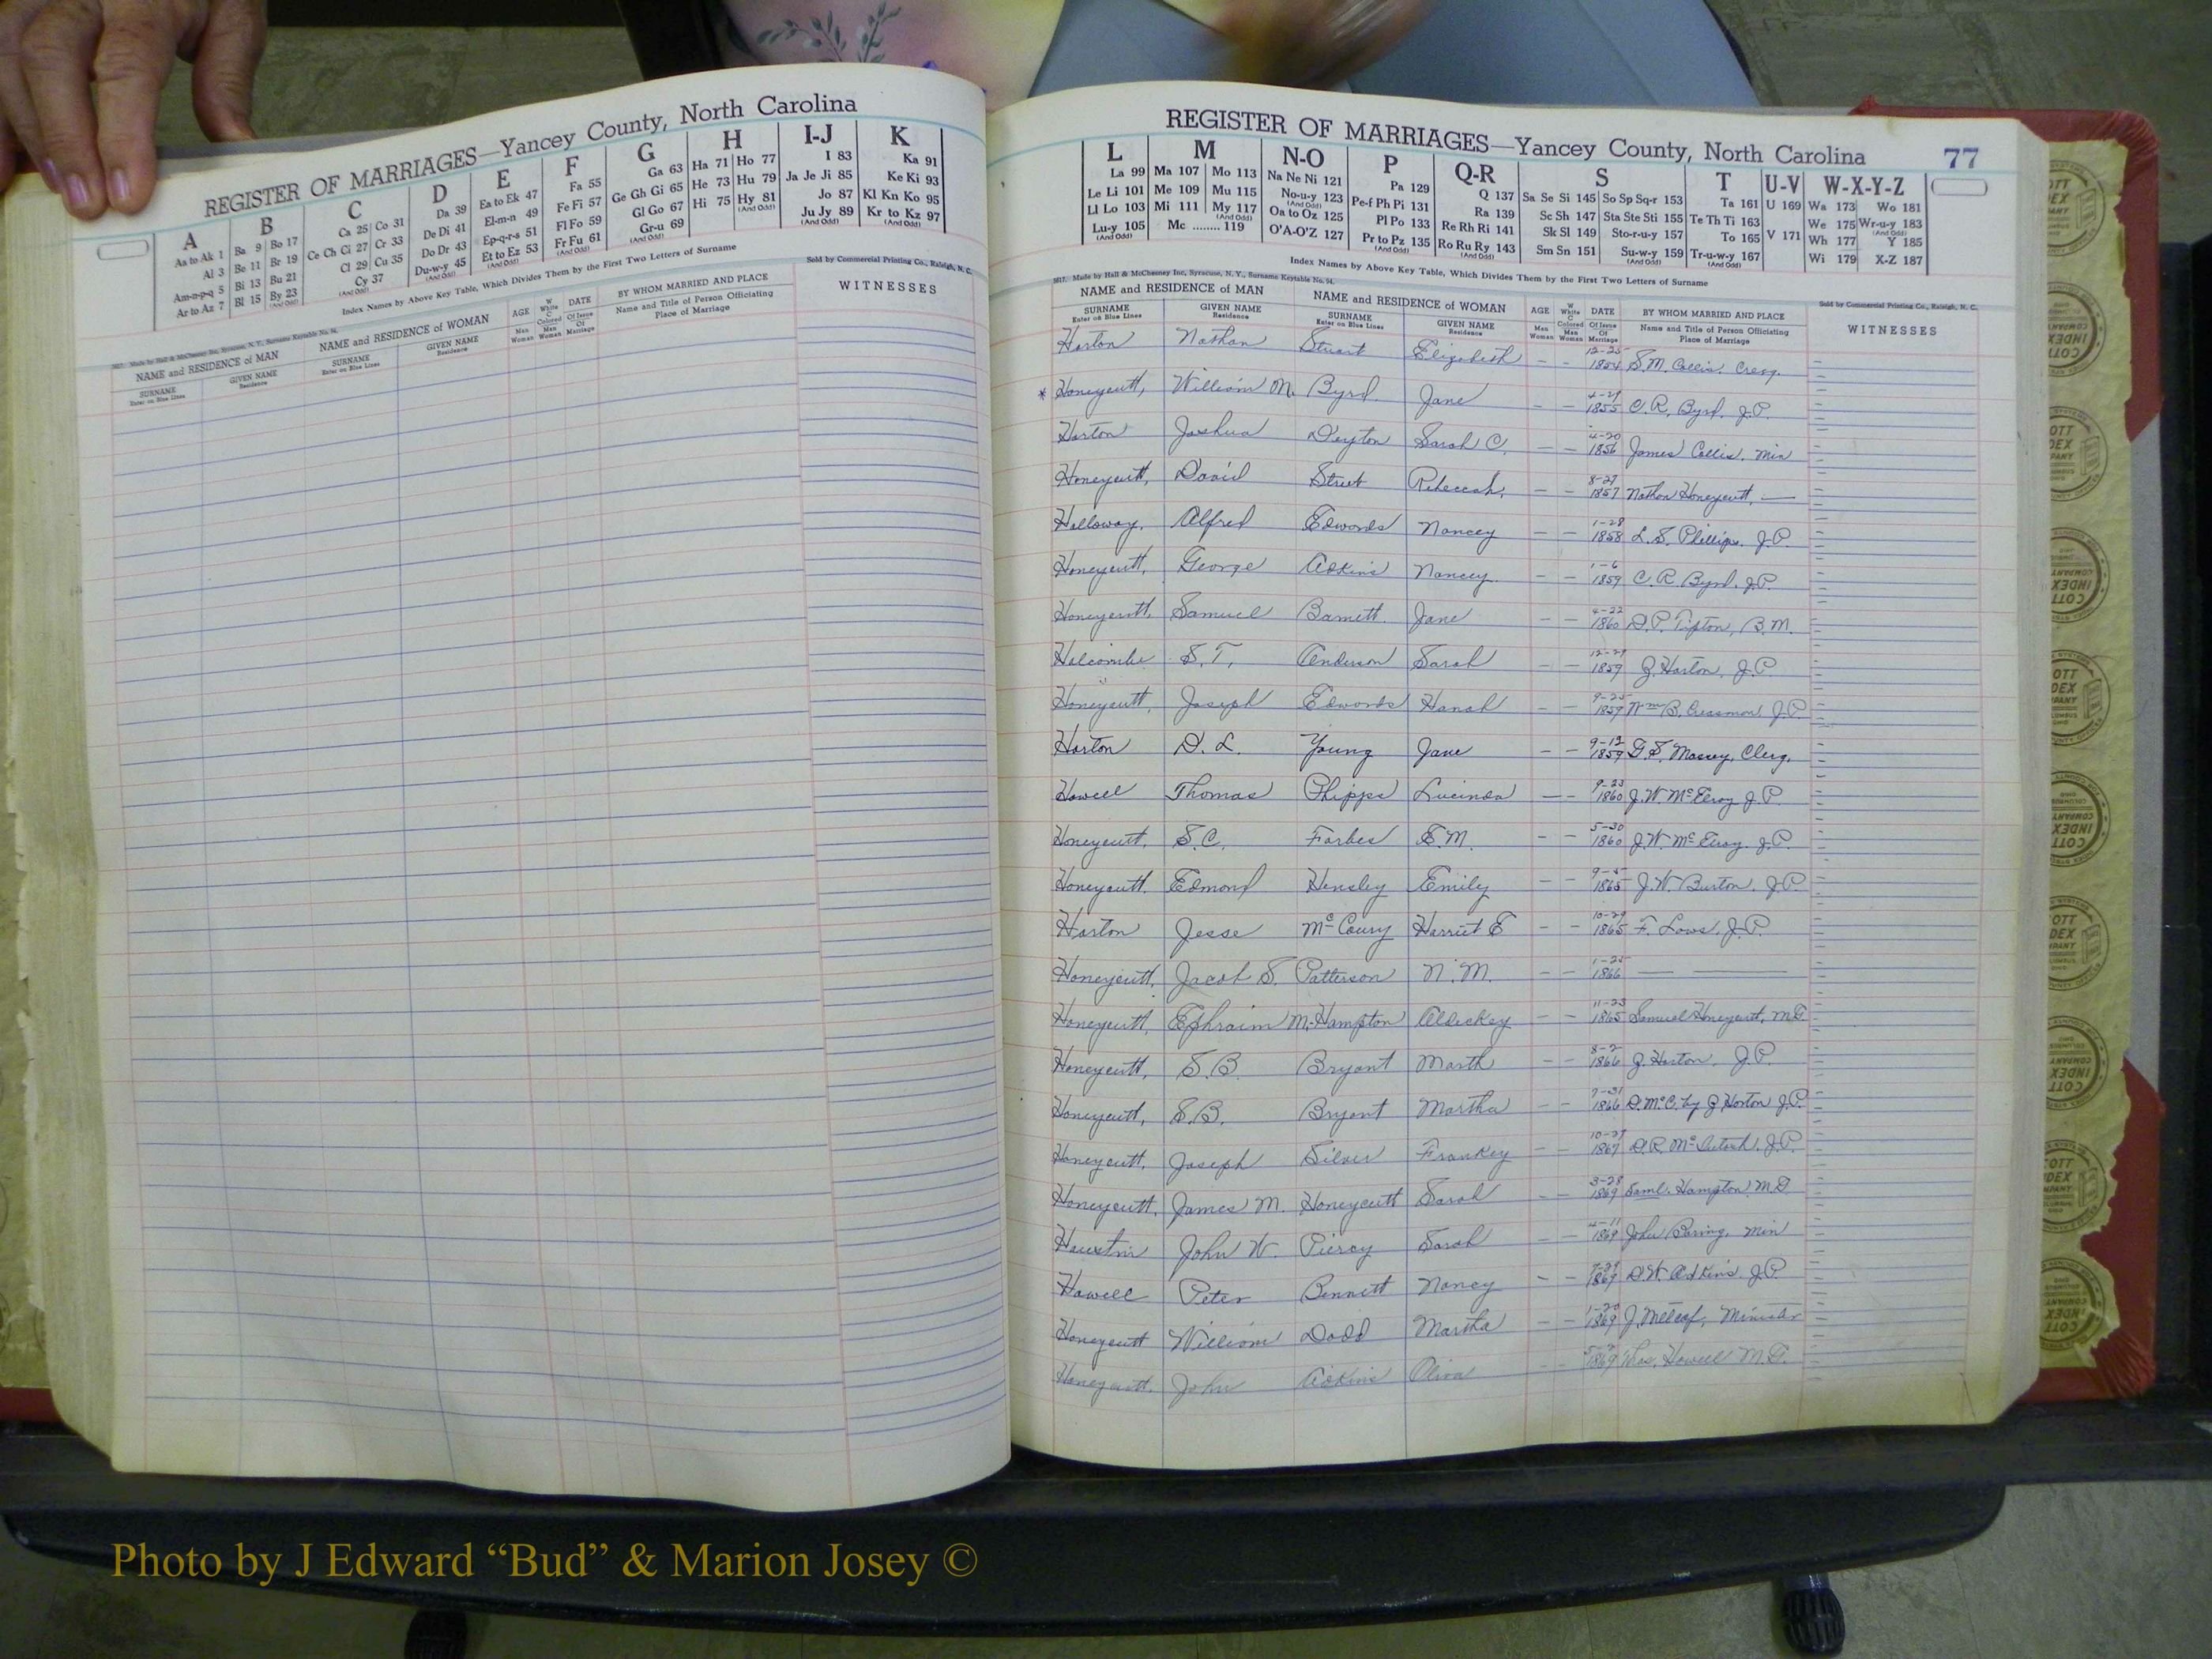 REGISTER OF MARRIAGES—Yancey County, North Carolina
A B C D E F G H I-J K
Aa to Ak 1 Ba 9 Bo 17 Ca 25 Co 31 Da 39 Ea to Ek 47 Fa 55 Ga 63 Ha 71 Ho 77 I 83 Ka 91
Al 3 Be 11 Br 19 Ce Ch Ci 27 Cr 33 De Di 41 El-m-n 49 Fe Fi 57 Ge Gh Gi 65 He 73 Hu 79 Ja Je Ji 85 Ke Ki 93
Am-n-p-q 5 Bi 13 Bu 21 Cl 29 Cu 35 Do Dr 43 Ep-q-r-s 51 Fl Fo 59 Gl Go 67 Hi 75 Hy 81 Jo 87 Kl Kn Ko 95
Ar to Az 7 Bl 15 By 23 Cy 37 Du-w-y 45 Et to Ez 53 Fr Fu 61 Gr-u 69 Ju Jy 89 Kr to Kz 97
(And Odd) (And Odd) (And Odd) (And Odd) (And Odd) (And Odd) (And Odd) (And Odd) (And Odd)
Index Names by Above Key Table, Which Divides Them by the First Two Letters of Surname
Made by Hall & McChesney Inc, Syracuse, N. Y., Surname Keytable No. 54.
Sold by Commercial Printing Co., Raleigh, N. C.
NAME and RESIDENCE of MAN NAME and RESIDENCE of WOMAN AGE W White C Colored DATE BY WHOM MARRIED AND PLACE WITNESSES
SURNAME Enter on Blue Lines GIVEN NAME Residence SURNAME Enter on Blue Lines GIVEN NAME Residence Man Woman Man Woman Of Issue Of Marriage Name and Title of Person Officiating Place of Marriage
REGISTER OF MARRIAGES—Yancey County, North Carolina 77
L M N-O P Q-R S T U-V W-X-Y-Z
La 99 Ma 107 Mo 113 Na Ne Ni 121 Pa 129 Q 137 Sa Se Si 145 So Sp Sq-r 153 Ta 161 U 169 Wa 173 Wo 181
Le Li 101 Me 109 Mu 115 No-u-y 123 Pe-f Ph Pi 131 Ra 139 Sc Sh 147 Sta Ste Sti 155 Te Th Ti 163 We 175 Wr-u-y 183
Ll Lo 103 Mi 111 My 117 Oa to Oz 125 Pl Po 133 Re Rh Ri 141 Sk Sl 149 Sto-r-u-y 157 To 165 V 171 Wh 177 Y 185
Lu-y 105 Mc ........ 119 O'A-O'Z 127 Pr to Pz 135 Ro Ru Ry 143 Sm Sn 151 Su-w-y 159 Tr-u-w-y 167 Wi 179 X-Z 187
(And Odd) (And Odd) (And Odd) (And Odd) (And Odd) (And Odd) (And Odd) (And Odd)
Index Names by Above Key Table, Which Divides Them by the First Two Letters of Surname
Made by Hall & McChesney Inc, Syracuse, N. Y., Surname Keytable No. 54.
Sold by Commercial Printing Co., Raleigh, N. C.
NAME and RESIDENCE of MAN NAME and RESIDENCE of WOMAN AGE W White C Colored DATE BY WHOM MARRIED AND PLACE WITNESSES
SURNAME Enter on Blue Lines GIVEN NAME Residence SURNAME Enter on Blue Lines GIVEN NAME Residence Man Woman Man Woman Of Issue Of Marriage Name and Title of Person Officiating Place of Marriage
Horton Nathan Stuart Elizabeth – – 12-25 1854 S.M. Collis.
* Honeycutt, William M. Byrd. Jane – – 1855 C.R. Byrd. J.P.
Horton Joshua Deyton Sarah C. – – 4-20 1856 James Collis. Min
Honeycutt, David Street Rebeccah. – – 8-27 1857 Nathan Honeycutt, —
Holloway, Alfred Edwords Nancey – – 1-28 1858 L.S. Phillips. J.P.
Honeycutt, George Adkins Nancey. – – 1-6 1859 C.R. Byrd. J.P.
Honeycutt, Samuel Barnett. Jane – – 4-22 1860 D.P. Tipton, B.M.
Holcombe S.T. Anderson Sarah – – 12-29 1859 Z. Horton. J.P.
Honeycutt, Joseph Edwords Hanah – – 9-25 1859 Wm B. Creasmon J.P.
Horton D.L. Young Jane – – 9-12 1859 G.S. Massey, Clerg.
Howell Thomas Phipps Lucinda – – 9-23 1860 J.W. McElroy J.P.
Honeycutt, S.C. Forbes E.M. – – 5-30 1860 J.W. McElroy. J.P.
Honeycutt. Edmond Hensley Emily – – 1865 J.W. Burton. J.P.
Horton Jesse McCoury Harriet E – – 10-29 1865 F. Laws. J.P.
Honeycutt, Jacob S. Patterson N.M. – – 1-25 1866 — —
Honeycutt, Ephraim M. Hampton Aldeckey – – 11-23 1865 Samuel Honeycutt, M.G.
Honeycutt, S.B. Bryant Marth – – 8-2 1866 Z. Horton, J.P.
Honeycutt, S.B. Bryant Martha – – 7-31 1866 D. McC. by Z Horton J.P.
Honeycutt, Joseph Silver Frankey – – 1867 D.R. McIntosh. J.P.
Honeycutt, James M. Honeycutt Sarah – – 3-28 1869 Saml. Hampton M.D.
John W. Piercy Sarah – – 4-11 1869 John Boring, Min
Howell Peter Bennett Nancy – – 1869 D.W. Adkins. J.P.
Honeycutt William Dodd Martha – – 1-20 1869 J. Metcaf, Minister
Honeycutt, John Adkins Oliva – – 1869 Thos. Howell M.G.
Photo by J Edward “Bud” & Marion Josey ©